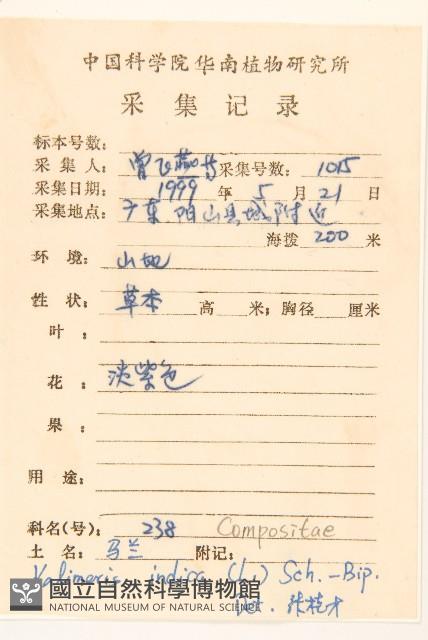 中国科学院华南植物研究所
采集记录
标本号数：
采集人：曾飞燕等 采集号数：1015
采集日期：1999年5月21日
采集地点：广东阳山县城附近
海拨 200 米
环境：山地
性状：草本 高 米；胸径 厘米
叶：
花：淡紫色
果：
用途：
科名(号)：238 Compositae
土名：马兰 附记：
Kalimeris indica (L.) Sch.-Bip.
Det. 张桂才
國立自然科學博物館
NATIONAL MUSEUM OF NATURAL SCIENCE